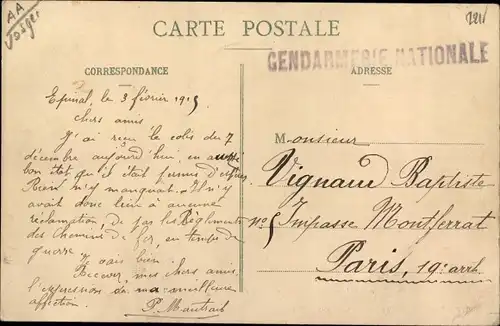 AA
CARTE POSTALE
GENDARMERIE NATIONALE
CORRESPONDANCE
Epinal, le 3 février 1915
Chers amis
J'ai reçu le colis du 7
décembre aujourd'hui, en aussi
bon état qu'il était fourni d'
Rien n'y manquait. Il n'y
avait donc lieu à aucune
réclamation de par les Règlements
des Chemins de fer, en temps de
guerre.
Je vais bien.
Recevez, mes chers amis,
l'expression de ma meilleure
affection
ADRESSE
Monsieur
Vignaud Baptiste
N° 5 Impasse Montferrat
Paris, 19e arrdt.